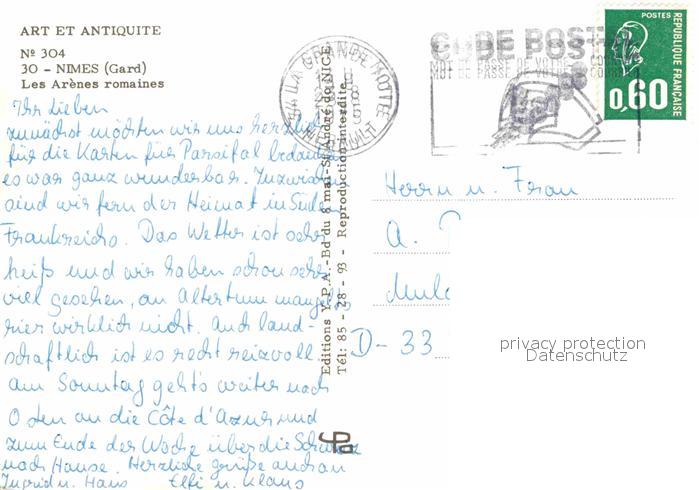 ART ET ANTIQUITE
Nº 304
30 - NIMES (Gard)
Les Arènes romaines
Ihr Lieben
zunächst möchten wir uns herzlich
für die Karten für Parsifal bedanken
es war ganz wunderbar. Inzwischen
sind wir fern der Heimat in Süden
Frankreichs. Das Wetter ist sehr
heiß und wir haben schon sehr
viel gesehen, an Altertum mangelts
hier wirklich nicht. Auch land-
schaftlich ist es recht reizvoll.
am Sonntag geht's weiter nach
Osten an die Côte d'Azur und
zum Ende der Woche über die Schweiz
nach Hause. Herzliche Grüße auch an
Ingrid u. Hans Elfi u. Klaus
Editions Y.P.A.-Bd du 8 mai-St André de NICE
Tél: 85 - 28 - 93 - Reproduction interdite
34 LA GRANDE MOTTE
HERAULT
CODE POSTAL
MOT DE PASSE DE VOTRE COURRIER
POSTES
REPUBLIQUE FRANÇAISE
0,60
Herrn u. Frau
A.
D - 33
privacy protection
Datenschutz